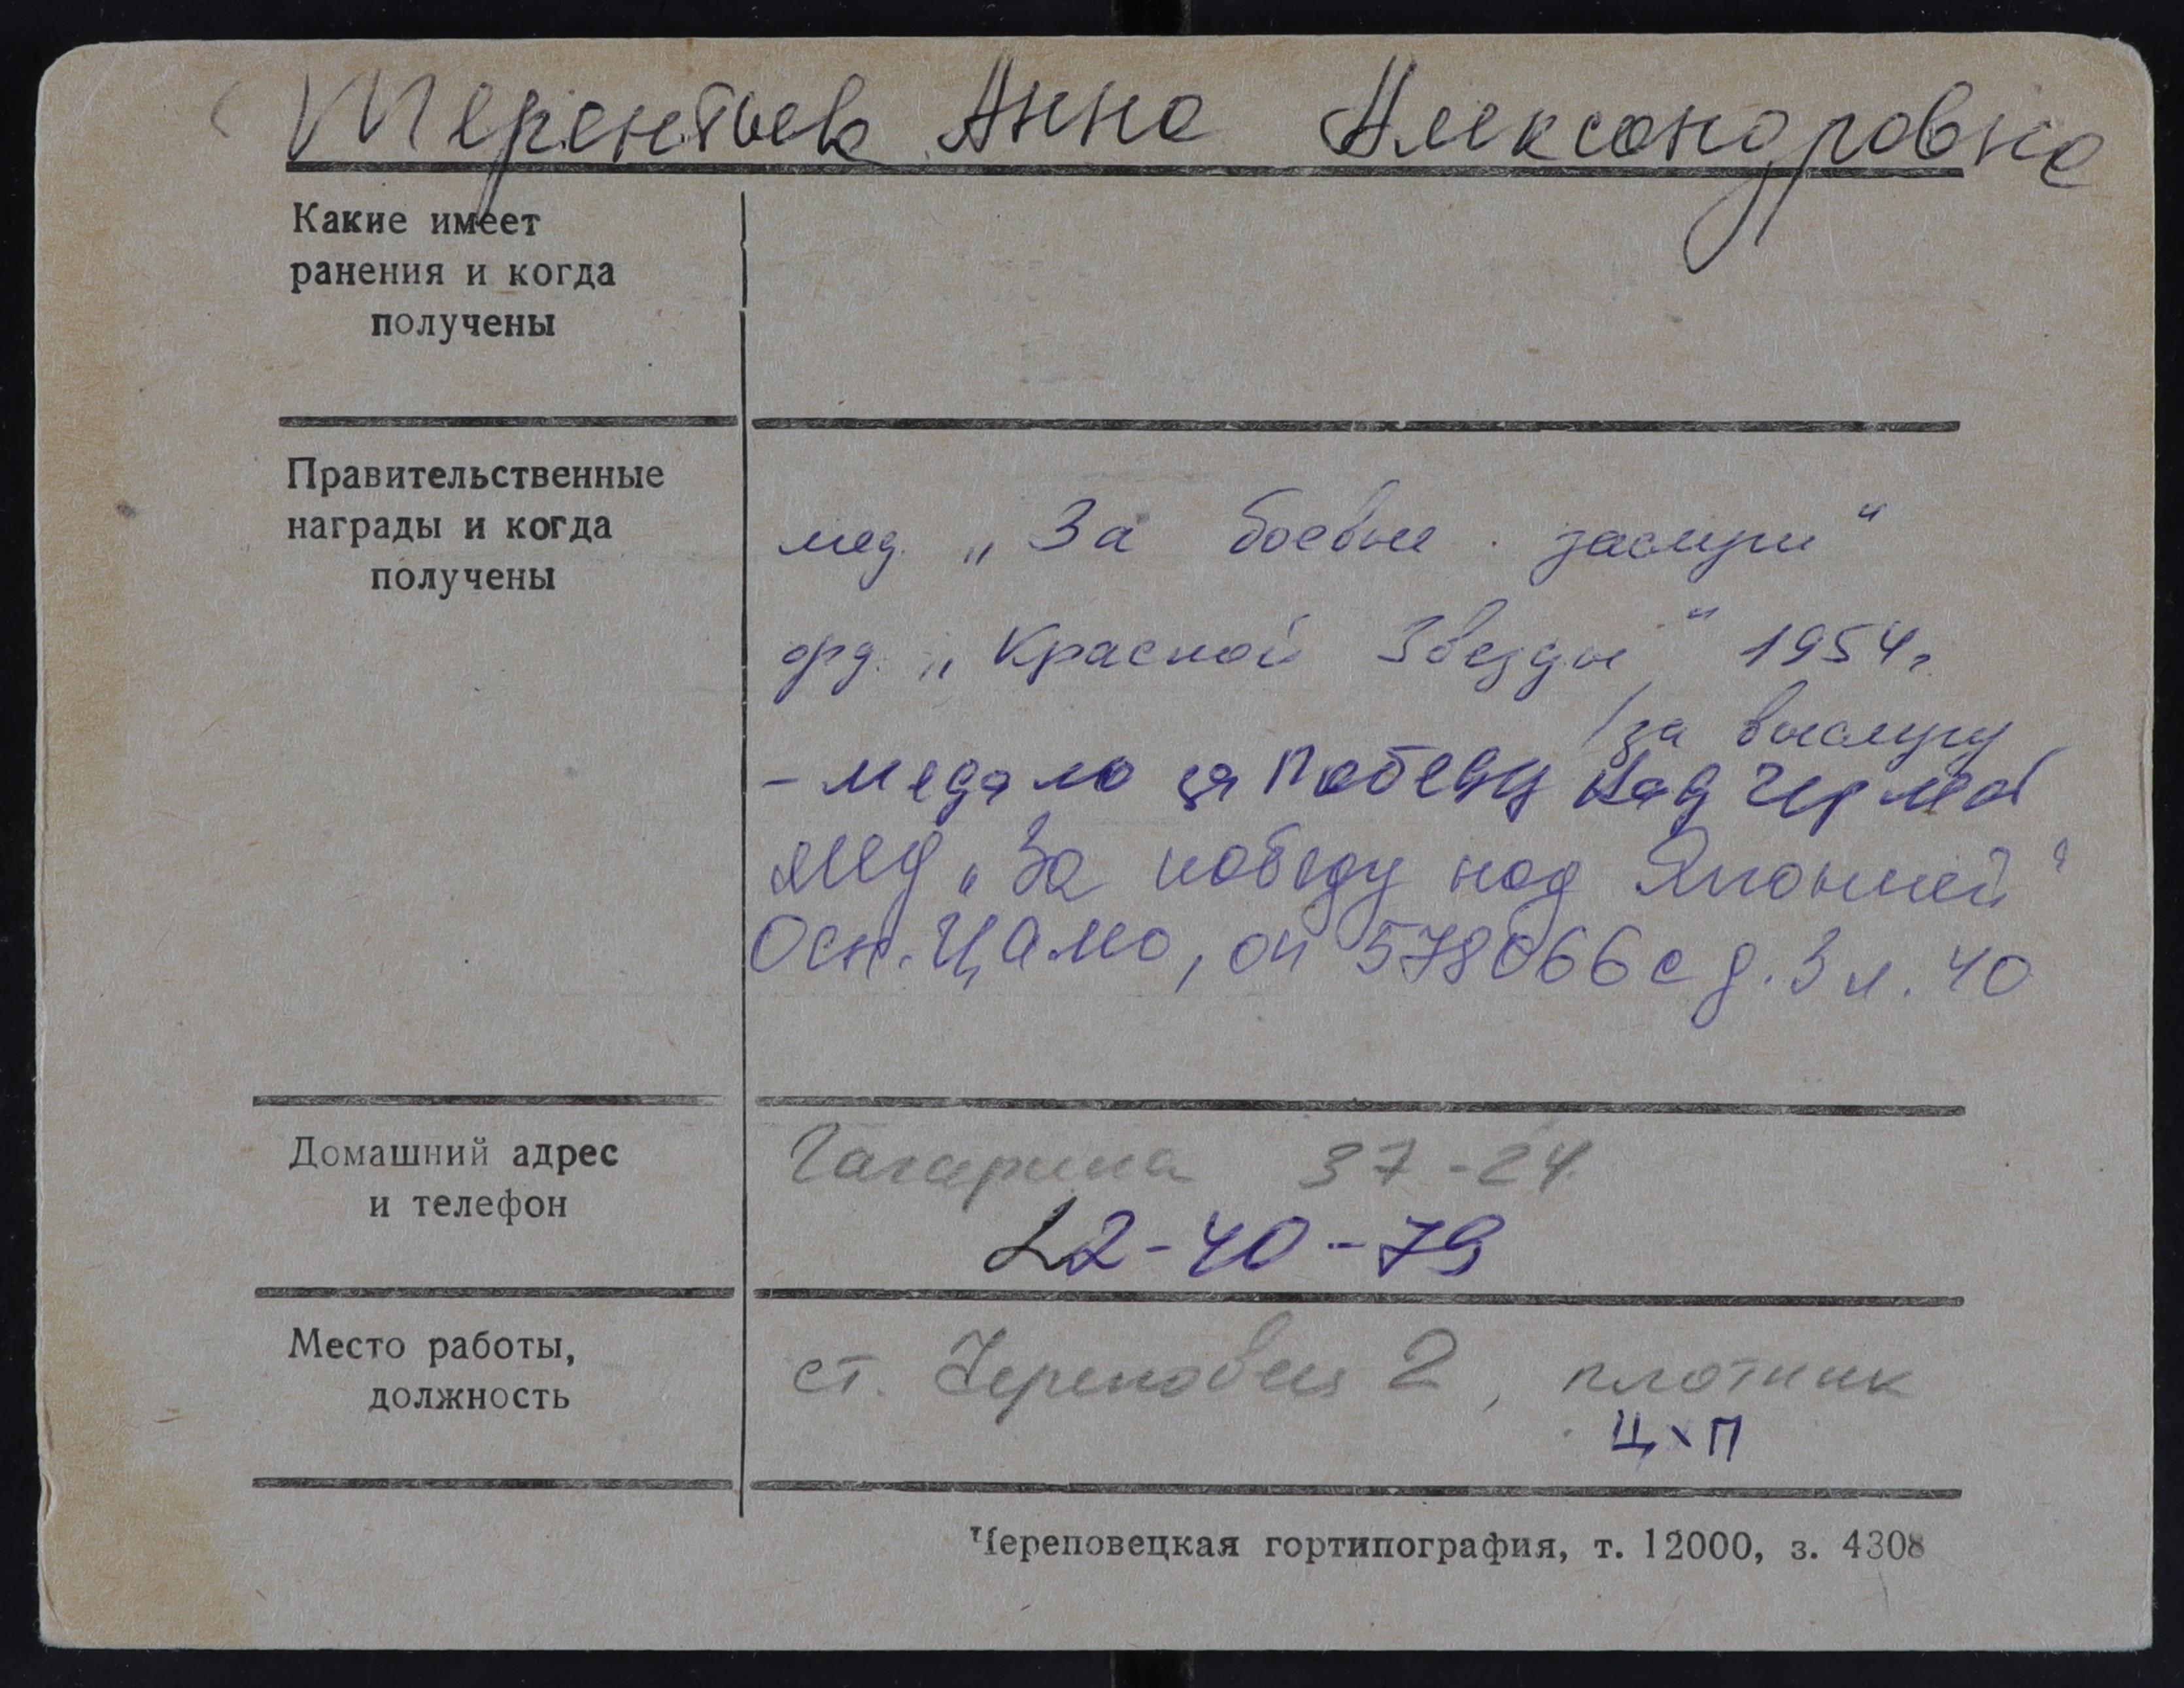 Терентьев Анна Александровна
Какие имеет
ранения и когда
получены
Правительственные
награды и когда
получены
мед. „За боевые заслуги“
орд. „Красной Звезды“ 1954г.
/за выслугу
- медаль за победу над Герма
мед „За победу над Японией“
Осн. ЦАМО, оп 578066с д. 3 л. 40
Домашний адрес
и телефон
Гагарина 37-24
2-40-79
Место работы,
должность
ст. Череповец 2, плотник
Череповецкая гортипография, т. 12000, з. 4308